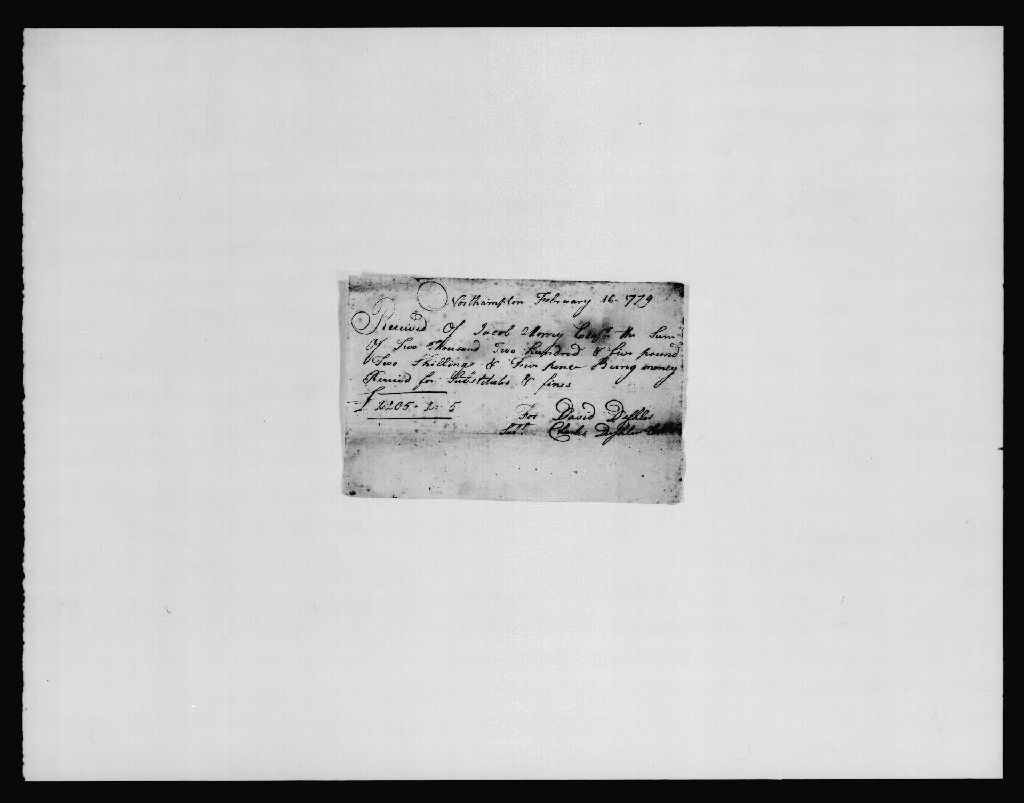 Northampton February 16. 779
Received Of Jacob Morry the Sum
Of Two Thousand Two hundred & five pound
Two Shillings & Five pence Being money
Receivd for Substitutes & fines
£ 2205 - 2 - 5
For David Deshler
Charles Deshler